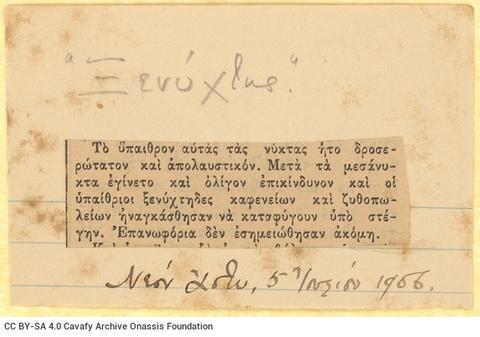 "Ξενύχτης."
Τὸ ὕπαιθρον αὐτὰς τὰς νύκτας ἦτο δροσε-
ρώτατον καὶ ἀπολαυστικόν. Μετὰ τὰ μεσάνυ-
κτα ἐγίνετο καὶ ὀλίγον ἐπικίνδυνον καὶ οἱ
ὑπαίθριοι ξενύχτηδες καφενείων καὶ ζυθοπω-
λείων ἠναγκάσθησαν νὰ καταφύγουν ὑπὸ στέ-
γην. Ἐπανωφόρια δὲν ἐσημειώθησαν ἀκόμη.
Νεόν Ἄστυ, 5 Ἰουλίου 1906.
CC BY-SA 4.0 Cavafy Archive Onassis Foundation